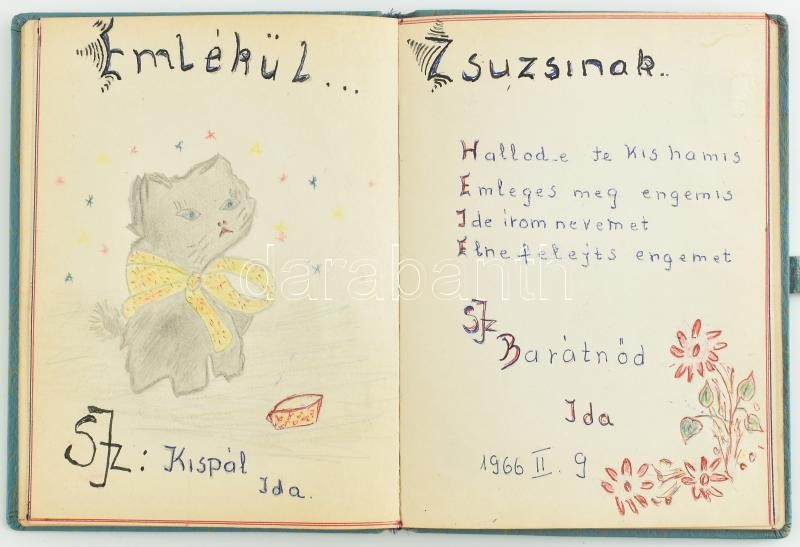 Emlékül...
SJz: Kispál
Ida.
Zsuzsinak..
Hallod-e te kis hamis
Emleges meg engemis
Ide irom nevemet
Elne felejts engemet
SJz
Barátnőd
Ida
1966 II. 9
darabanth